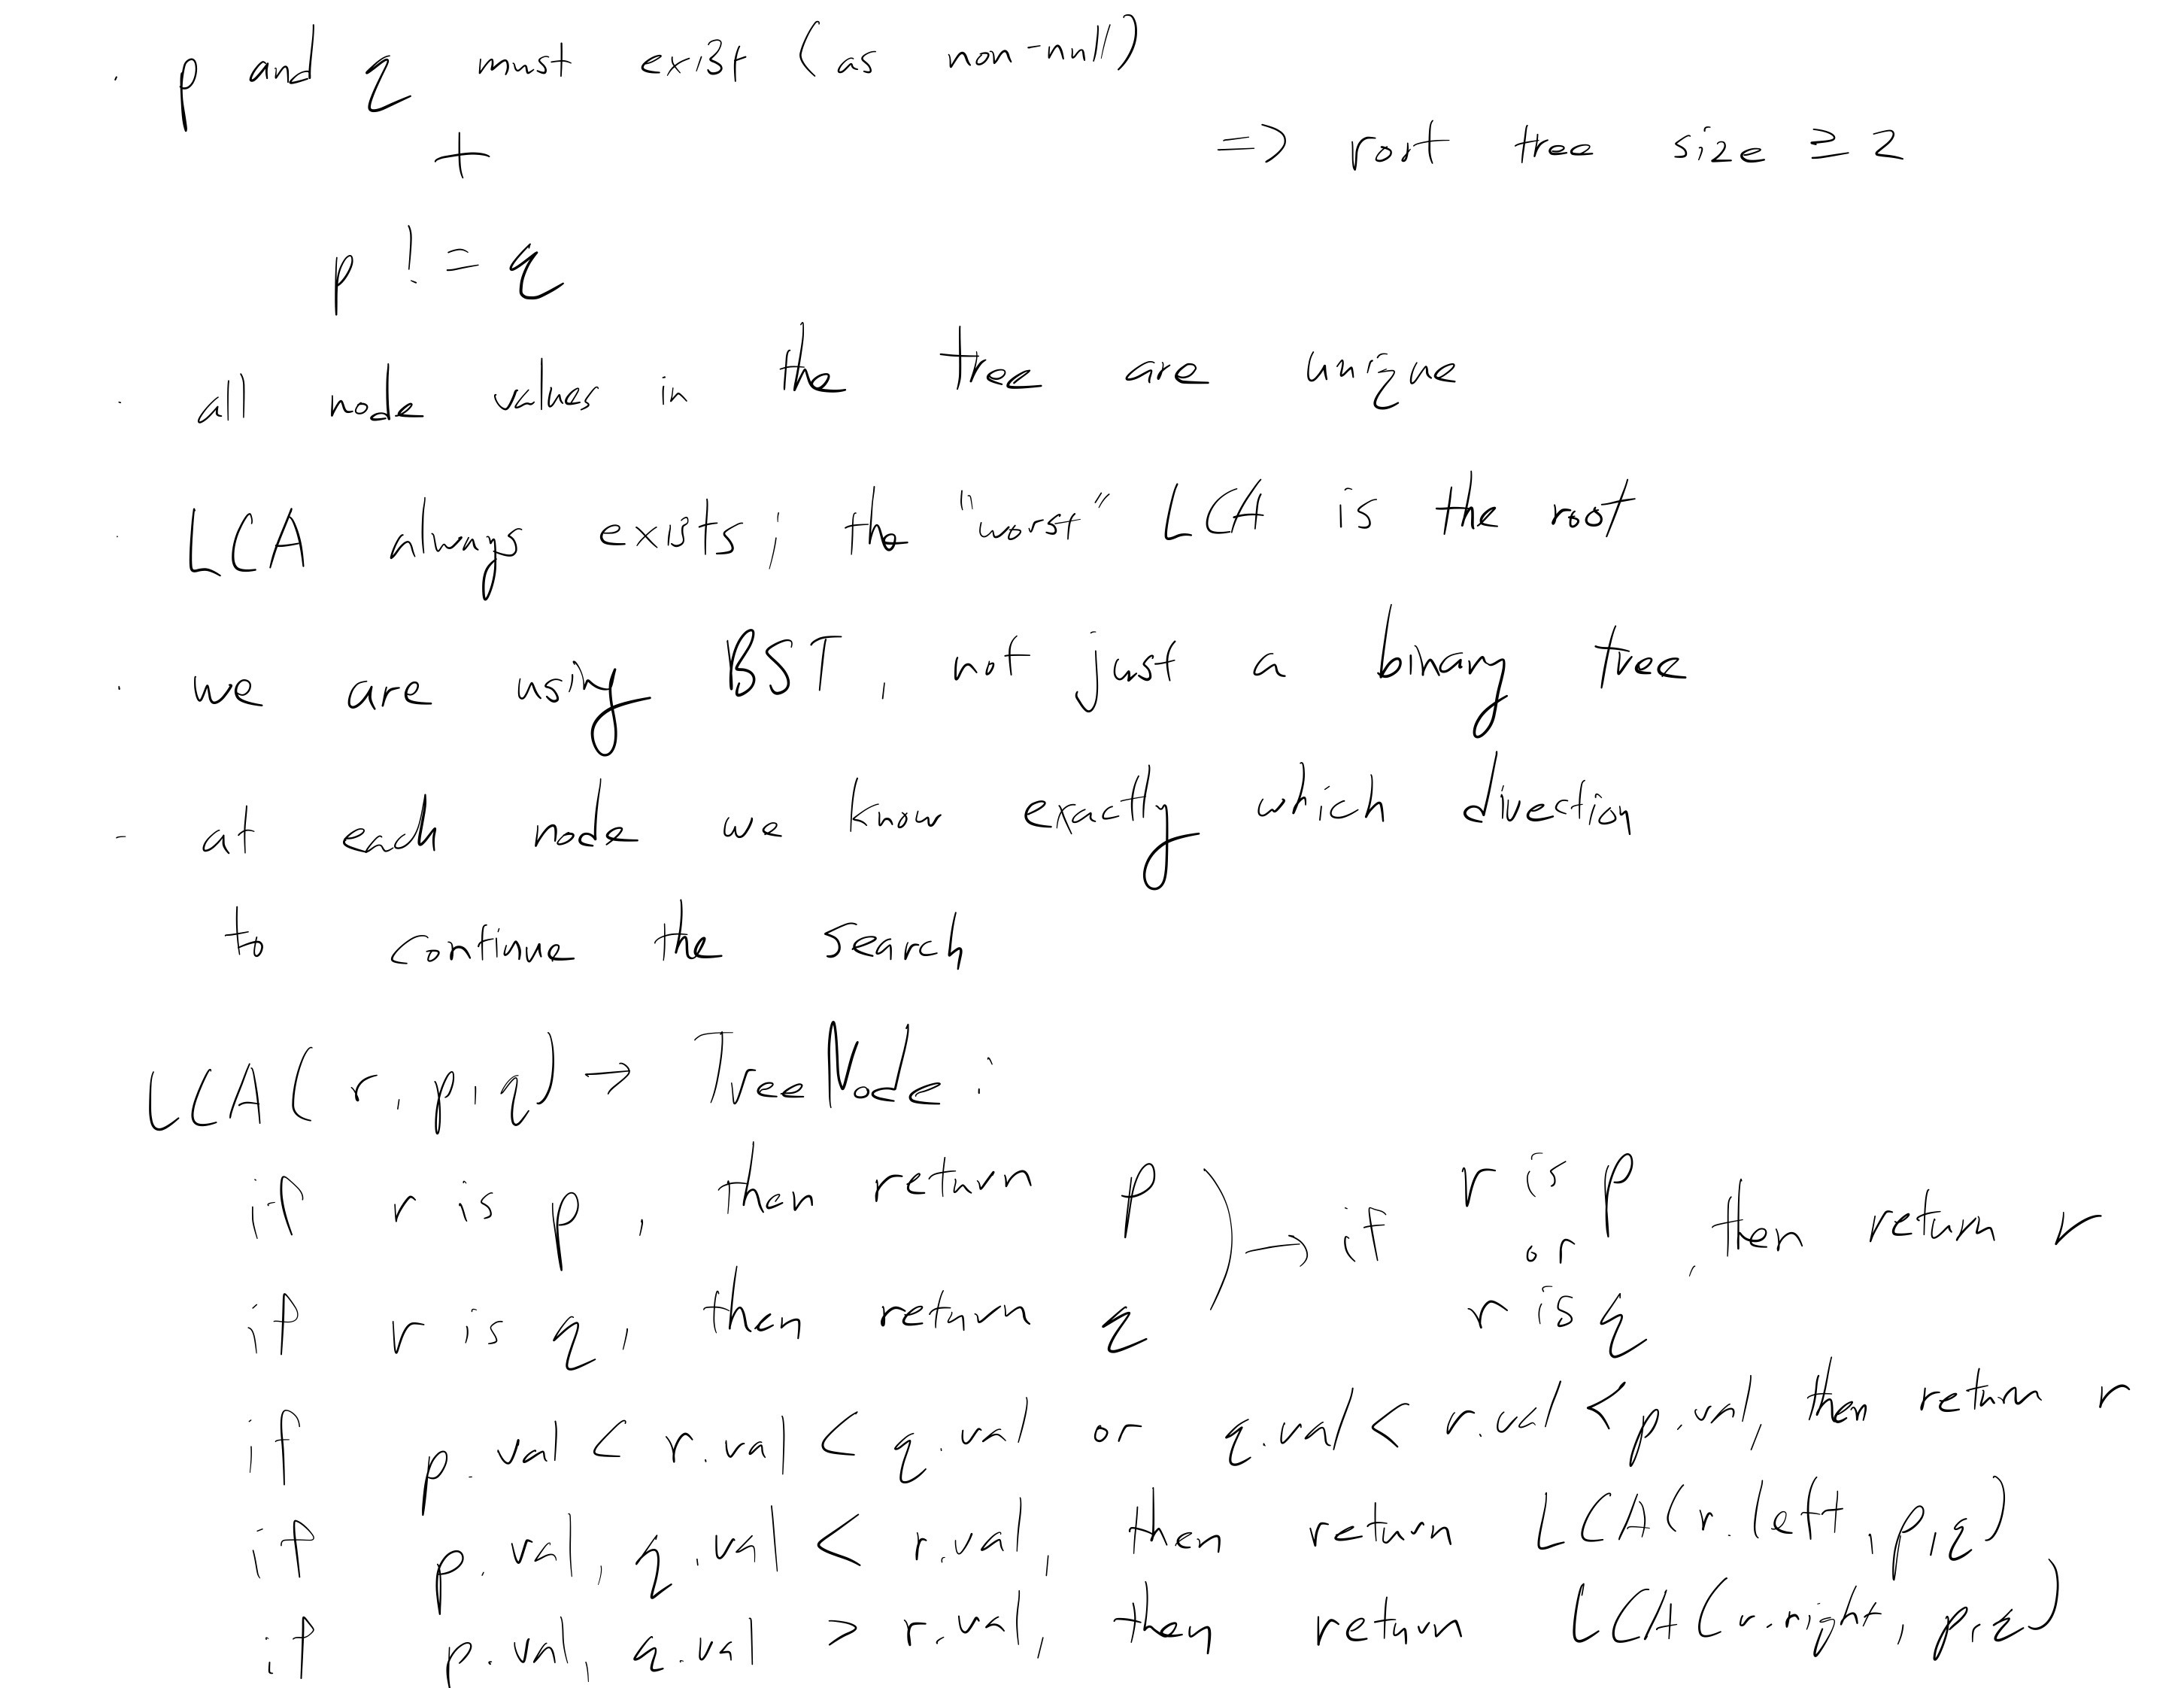 · p and q must exist (as non-null)
+
=> root tree size ≥ 2
p != q
· all node values in the tree are unique
· LCA always exists; the "worst" LCA is the root
· we are using BST, not just a binary tree
- at each node we know exactly which direction
to continue the search
LCA(r, p, q) → TreeNode:
if r is p, then return p
if r is q, then return q
→ if r is p or r is q, then return r
if p.val < r.val < q.val or q.val < r.val < p.val, then return r
if p.val, q.val < r.val, then return LCA(r.left, p, q)
if p.val, q.val > r.val, then return LCA(r.right, p, q)